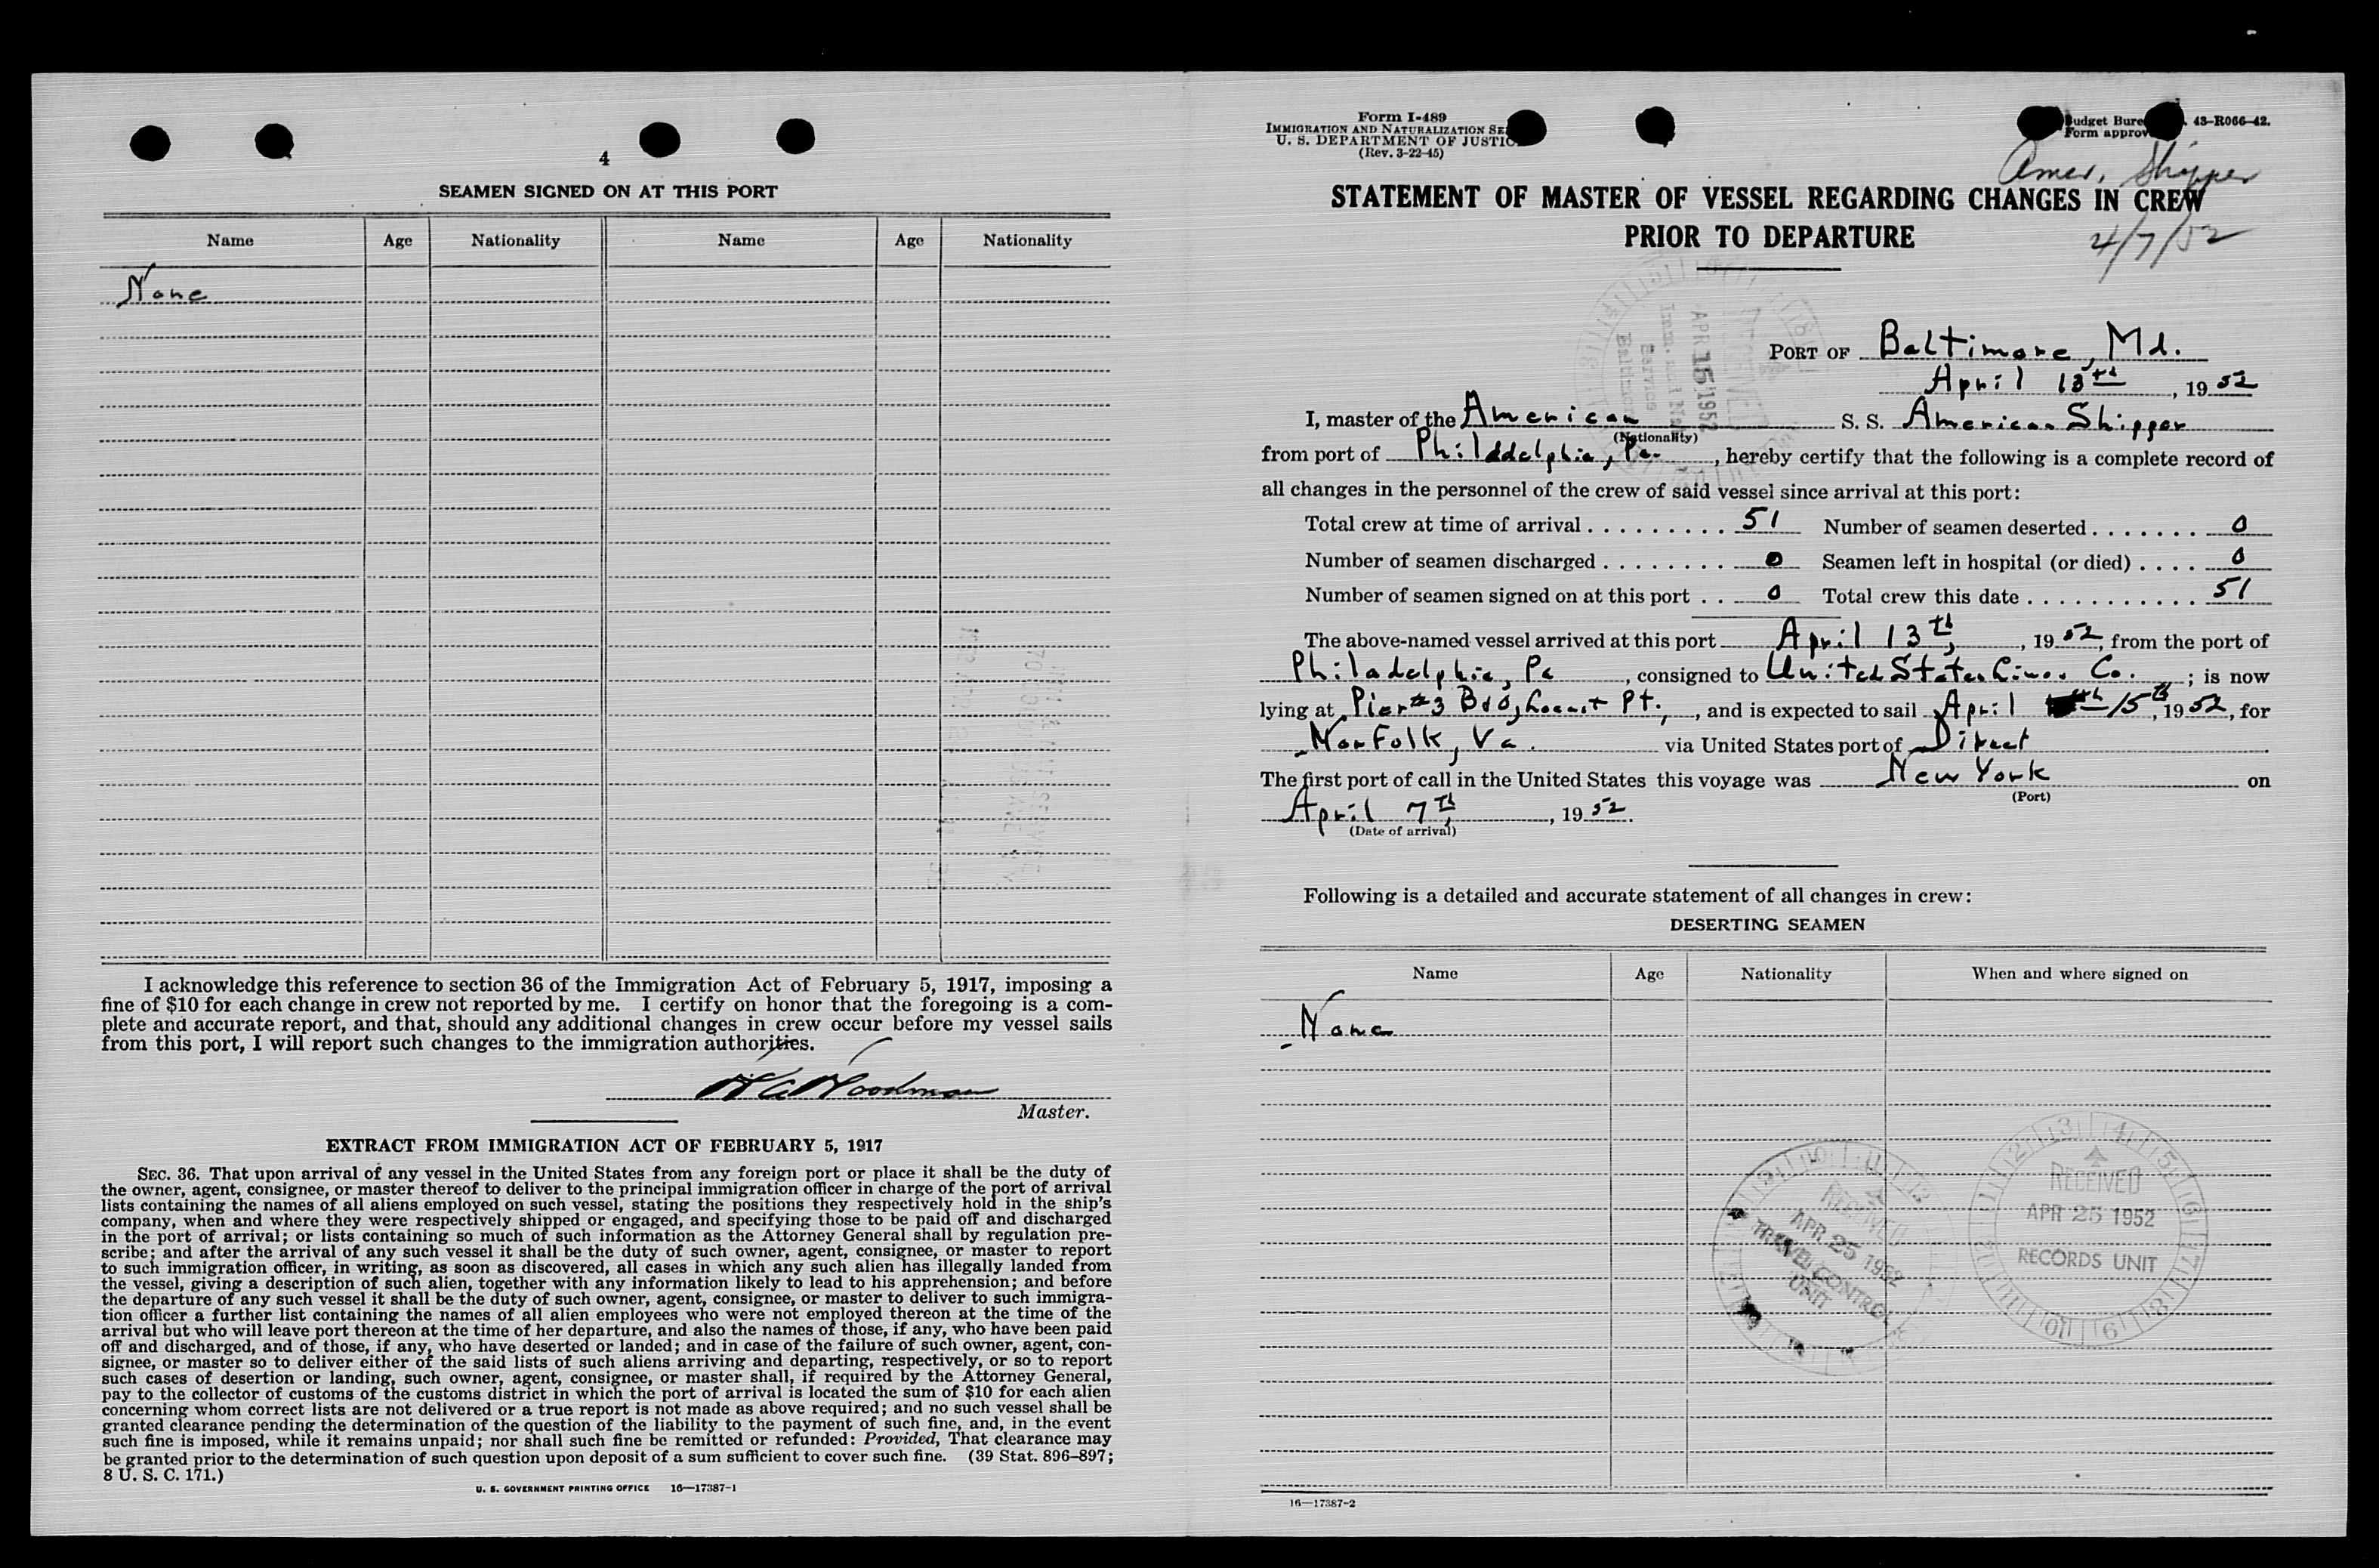 4
SEAMEN SIGNED ON AT THIS PORT
Name Age Nationality Name Age Nationality
None
I acknowledge this reference to section 36 of the Immigration Act of February 5, 1917, imposing a
fine of $10 for each change in crew not reported by me. I certify on honor that the foregoing is a com-
plete and accurate report, and that, should any additional changes in crew occur before my vessel sails
from this port, I will report such changes to the immigration authorities.
Woodman
Master.
EXTRACT FROM IMMIGRATION ACT OF FEBRUARY 5, 1917
SEC. 36. That upon arrival of any vessel in the United States from any foreign port or place it shall be the duty of
the owner, agent, consignee, or master thereof to deliver to the principal immigration officer in charge of the port of arrival
lists containing the names of all aliens employed on such vessel, stating the positions they respectively hold in the ship's
company, when and where they were respectively shipped or engaged, and specifying those to be paid off and discharged
in the port of arrival; or lists containing so much of such information as the Attorney General shall by regulation pre-
scribe; and after the arrival of any such vessel it shall be the duty of such owner, agent, consignee, or master to report
to such immigration officer, in writing, as soon as discovered, all cases in which any such alien has illegally landed from
the vessel, giving a description of such alien, together with any information likely to lead to his apprehension; and before
the departure of any such vessel it shall be the duty of such owner, agent, consignee, or master to deliver to such immigra-
tion officer a further list containing the names of all alien employees who were not employed thereon at the time of the
arrival but who will leave port thereon at the time of her departure, and also the names of those, if any, who have been paid
off and discharged, and of those, if any, who have deserted or landed; and in case of the failure of such owner, agent, con-
signee, or master so to deliver either of the said lists of such aliens arriving and departing, respectively, or so to report
such cases of desertion or landing, such owner, agent, consignee, or master shall, if required by the Attorney General,
pay to the collector of customs of the customs district in which the port of arrival is located the sum of $10 for each alien
concerning whom correct lists are not delivered or a true report is not made as above required; and no such vessel shall be
granted clearance pending the determination of the question of the liability to the payment of such fine, and, in the event
such fine is imposed, while it remains unpaid; nor shall such fine be remitted or refunded: Provided, That clearance may
be granted prior to the determination of such question upon deposit of a sum sufficient to cover such fine. (39 Stat. 896–897;
8 U. S. C. 171.)
U. S. GOVERNMENT PRINTING OFFICE 16—17387-1
Form I-489
IMMIGRATION AND NATURALIZATION SE
U. S. DEPARTMENT OF JUSTIC
(Rev. 3-22-45)
Budget Bure 43–R066–42.
Form approv
Amer. Shipper
STATEMENT OF MASTER OF VESSEL REGARDING CHANGES IN CREW
PRIOR TO DEPARTURE
4/7/52
APR 15 1952
PORT OF Baltimore, Md.
April 13th, 19 52
I, master of the American S. S. American Shipper
(Nationality)
from port of Philadelphia, Pa., hereby certify that the following is a complete record of
all changes in the personnel of the crew of said vessel since arrival at this port:
Total crew at time of arrival . . . . . . . . . 51 Number of seamen deserted . . . . . . . 0
Number of seamen discharged . . . . . . . . 0 Seamen left in hospital (or died) . . . . 0
Number of seamen signed on at this port . . 0 Total crew this date . . . . . . . . . . . . 51
The above-named vessel arrived at this port April 13th, 19 52, from the port of
Philadelphia, Pa, consigned to United States Lines Co.; is now
lying at Pier #3 B&O, Locust Pt., and is expected to sail April 15th, 19 52, for
Norfolk, Va. via United States port of Direct
The first port of call in the United States this voyage was New York on
(Port)
April 7th, 19 52.
(Date of arrival)
Following is a detailed and accurate statement of all changes in crew:
DESERTING SEAMEN
Name Age Nationality When and where signed on
None
RECEIVED
APR 25 1952
TRAVEL CONTROL
UNIT
RECEIVED
APR 25 1952
RECORDS UNIT
16—17387-2